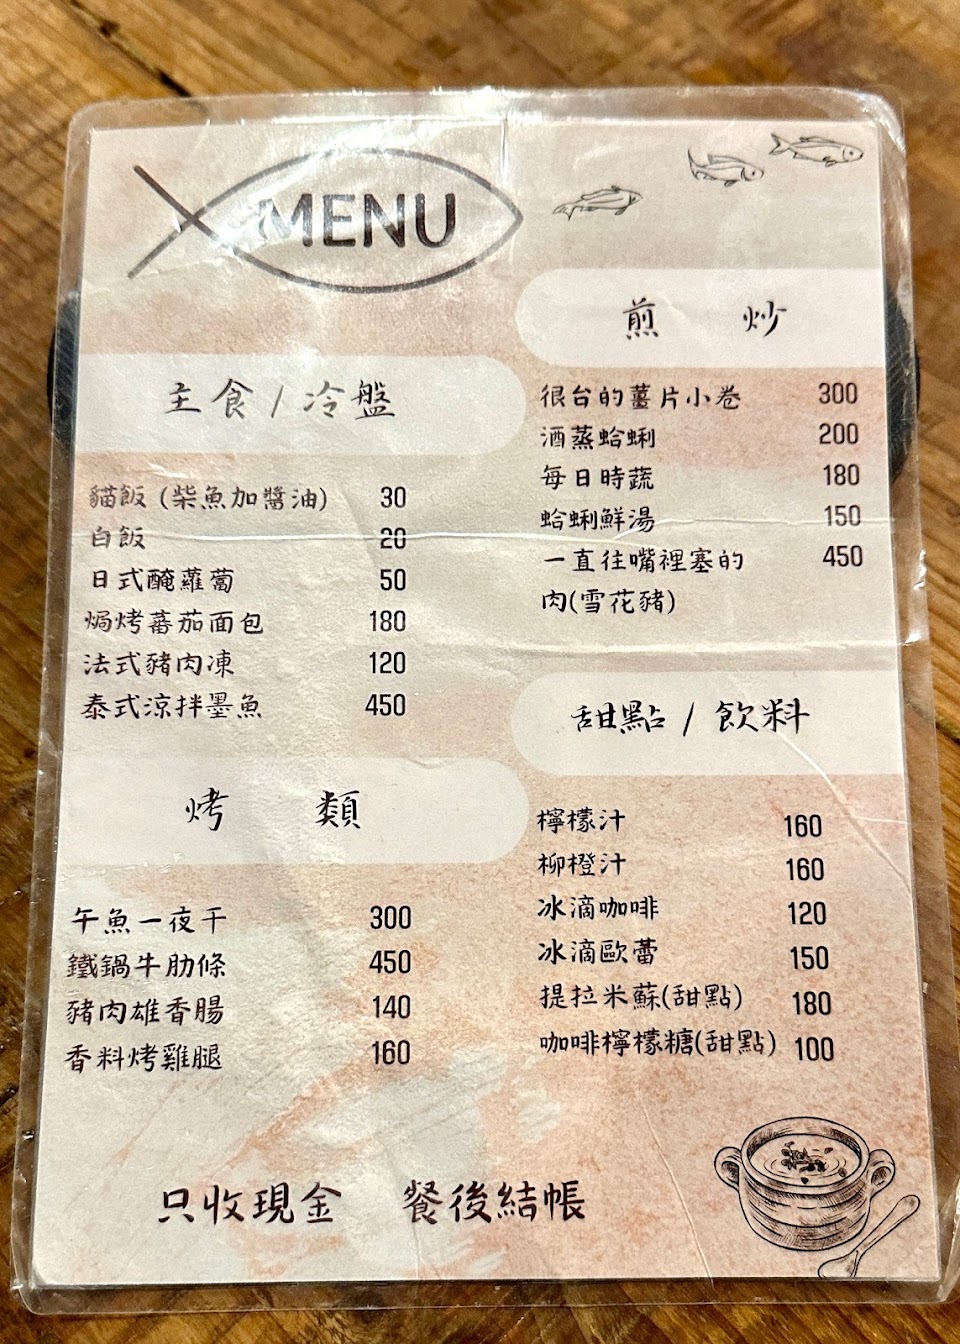 MENU
主食 / 冷盤
貓飯 (柴魚加醬油) 30
白飯 20
日式醃蘿蔔 50
焗烤蕃茄面包 180
法式豬肉凍 120
泰式涼拌墨魚 450
烤 類
午魚一夜干 300
鐵鍋牛肋條 450
豬肉雄香腸 140
香料烤雞腿 160
煎 炒
很台的薑片小卷 300
酒蒸蛤蜊 200
每日時蔬 180
蛤蜊鮮湯 150
一直往嘴裡塞的 450
肉(雪花豬)
甜點 / 飲料
檸檬汁 160
柳橙汁 160
冰滴咖啡 120
冰滴歐蕾 150
提拉米蘇(甜點) 180
咖啡檸檬糖(甜點) 100
只收現金 餐後結帳